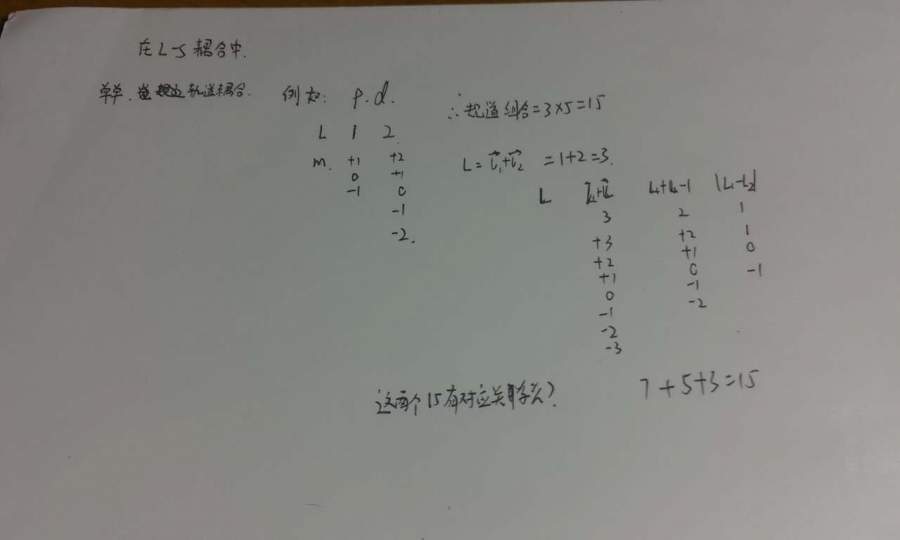 在L-S耦合中.
单单, 轨道耦合. 例如: p. d.
∴轨道组合=3×5=15
L 1 2
m. +1 +2
0 +1
-1 0
-1
-2.
L=l₁+l₂ =1+2=3.
L L₁+L₂ L₁+L₂-1 |L₁-L₂|
3 2 1
+3 +2 1
+2 +1 0
+1 0 -1
0 -1
-1 -2
-2
-3
7+5+3=15
这两个15有对应关系么?